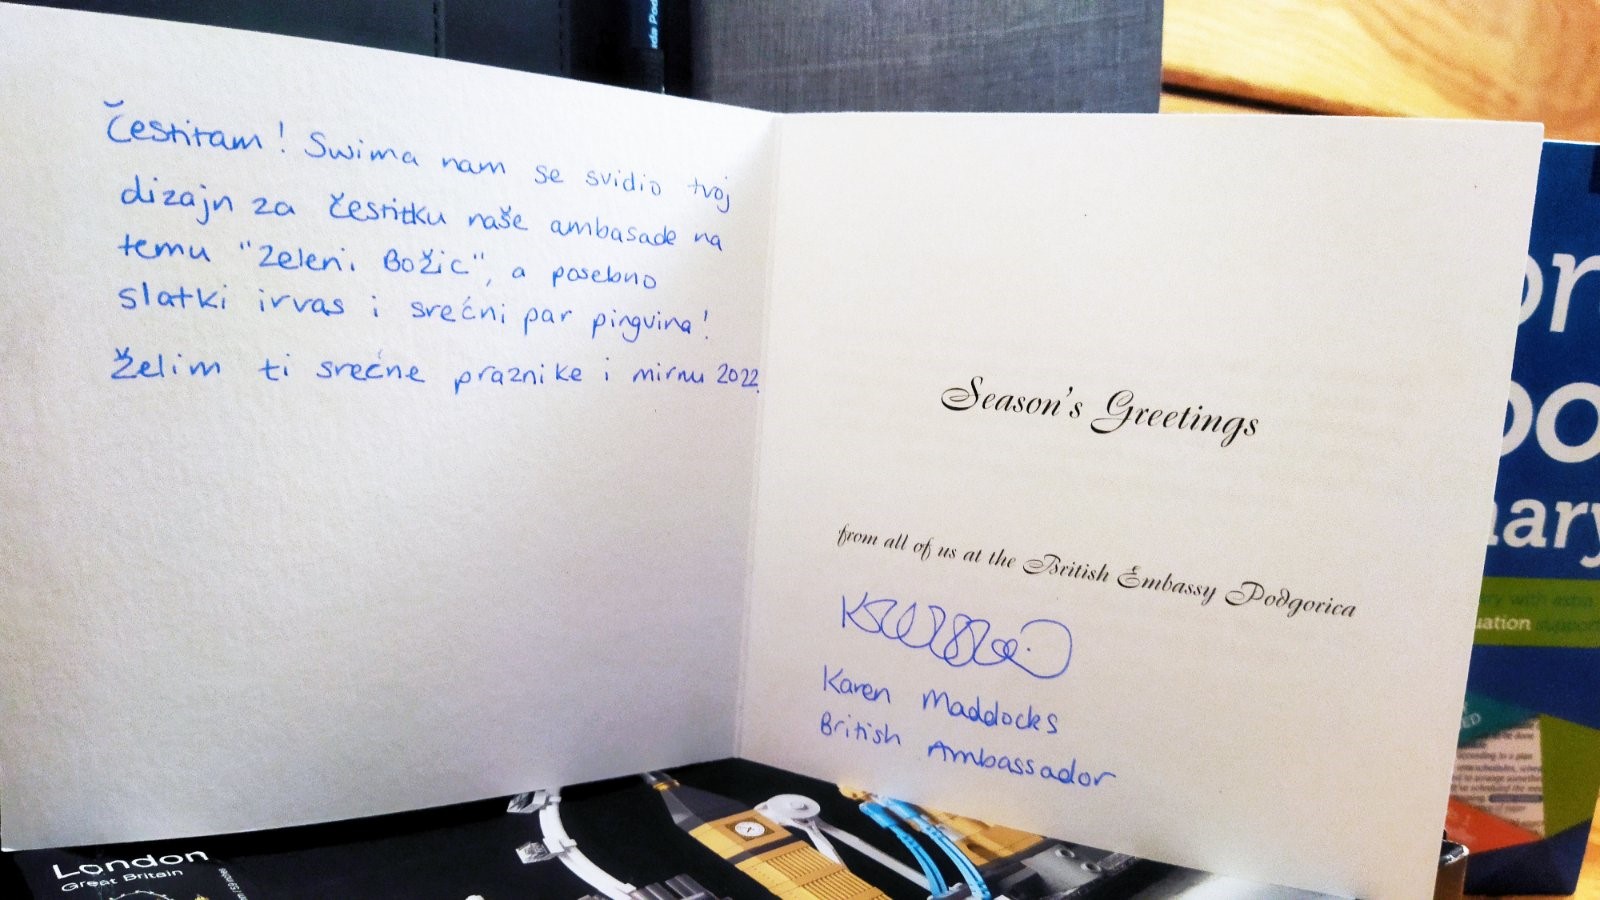 Čestitam! Swima nam se svidio tvoj
dizajn za čestitku naše ambasade na
temu "Zeleni Božic", a posebno
slatki irvas i srećni par pingvina!
Želim ti srećne praznike i mirnu 2022.
Season's Greetings
from all of us at the British Embassy Podgorica
Karen Maddocks
British Ambassador
London
Great Britain